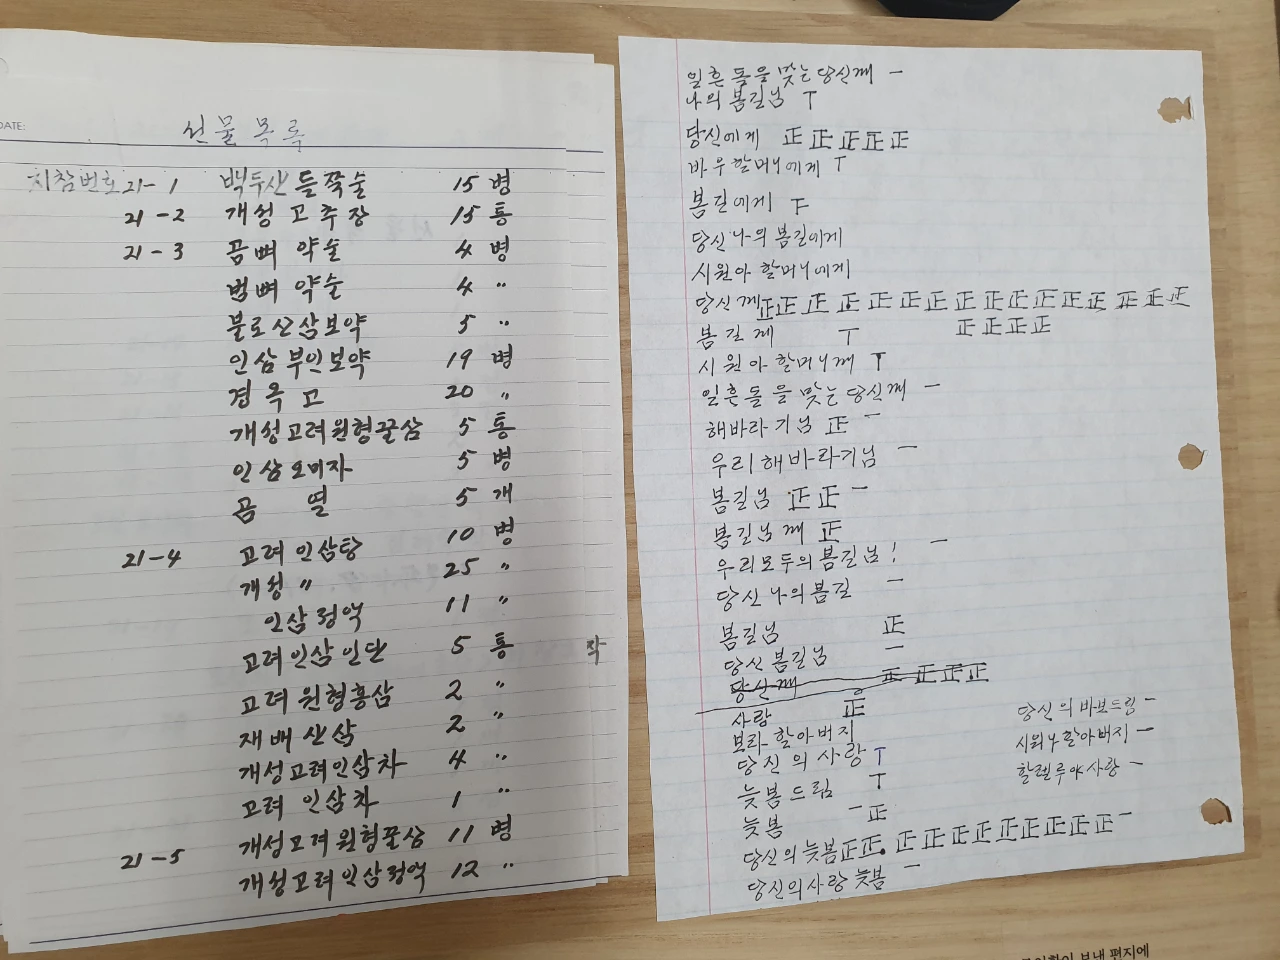 DATE:
선물목록
지참번호 21-1 백두산들쭉술 15 병
21-2 개성고추장 15 통
21-3 곰뼈약술 4 병
범뼈약술 4 〃
불로산삼보약 5 〃
인삼부인보약 19 병
경옥고 20 〃
개성고려원형꿀삼 5 통
인삼오미자 5 병
곰열 5 개
21-4 고려인삼탕 10 병
개성 〃 25 〃
인삼정액 11 〃
고려인삼인단 5 통
고려원형홍삼 2 〃
재배산삼 2 〃
개성고려인삼차 4 〃
고려인삼차 1 〃
21-5 개성고려원형꿀삼 11 병
개성고려인삼정액 12 〃
일흔돌을 맞는 당신께 一
나의 봄길님 丅
당신에게 正 正 正 正 正
바우할머니에게 丅
봄길에게 下
당신 나의 봄길에게
시원아 할머니에게
당신께 正 正 正 正 正 正 正 正 正 正 正 正 正 正 正 正
봄길께 丅 正 正 正 正
시원아 할머니께 丅
일흔돌을 맞는 당신께 一
해바라기님 正 一
우리 해바라기님 一
봄길님 正 正 一
봄길님께 正
우리모두의 봄길님! 一
당신 나의 봄길 一
봄길님 正
당신 봄길님 一
당신께 正 正 正 正
사랑 正
보라 할아버지
당신의 사랑 丅
늦봄드림 丅
늦봄 一 正
당신의 늦봄 正 正 正 正 正 正 正 正 正 正 一
당신의 사랑 늦봄 一
당신의 바보드림 一
할아버지 一
할렐루야 사랑 一
보낸 편지에